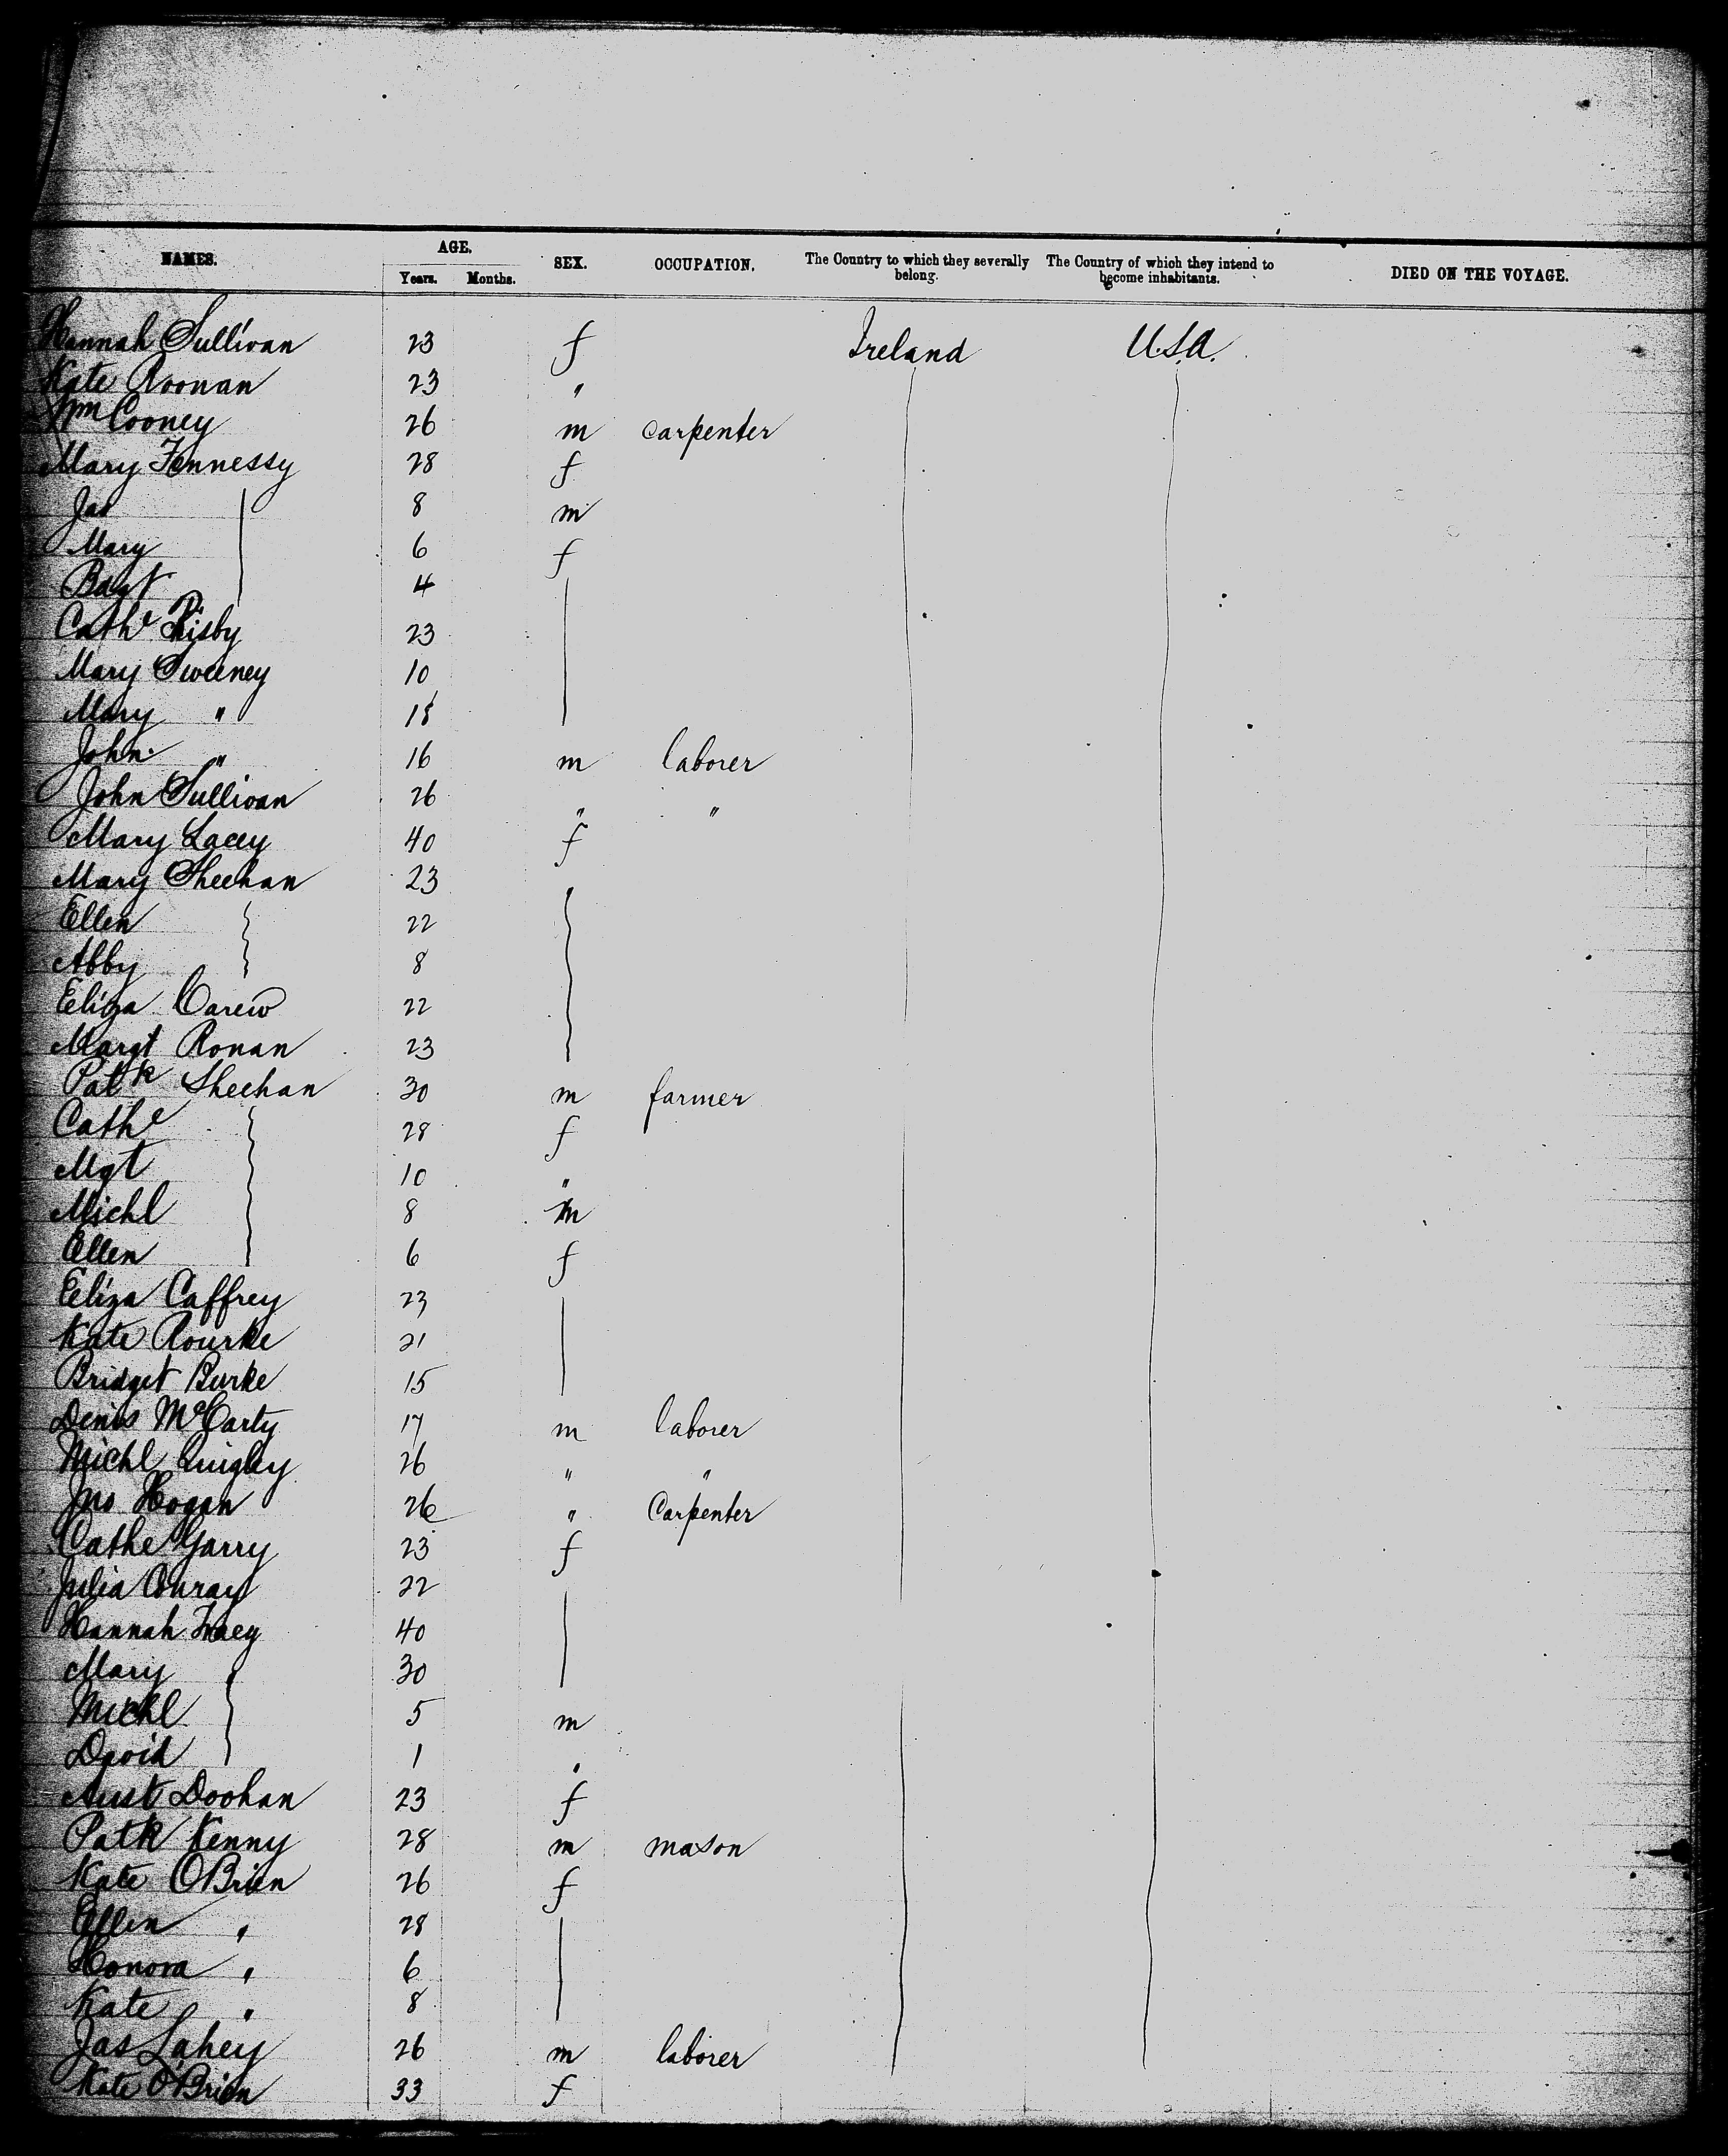 NAMES. AGE. SEX. OCCUPATION. The Country to which they severally belong. The Country of which they intend to become inhabitants. DIED ON THE VOYAGE.
Years. Months.
Hannah Sullivan 23 f Ireland U.S.A.
Kate Roonan 23 "
Wm Cooney 26 m carpenter
Mary Fennessy 28 f
Jas 8 m
Mary 6 f
4
Cathe Risby 23
Mary Sweeney 10
Mary " 18
John " 16 m laborer
John Sullivan 26 " "
Mary Lacey 40 f
Mary Sheehan 23
Ellen 22
Abby 8
Eliza Carew 22
Margt Ronan 23
Patk Sheehan 30 m farmer
Cathe 28 f
Mgt 10 "
Michl 8 m
Ellen 6 f
Eliza Caffrey 23
Kate Rourke 21
Bridget Burke 15
Denis McCarty 17 m laborer
Michl Quigley 26 " "
Jno Hogan 26 " Carpenter
Cathe Garry 23 f
Julia Conray 22
Hannah Tracy 40
Mary 30
Michl 5 m
David 1 "
Doohan 23 f
Patk Kenny 28 m mason
Kate OBrien 26 f
Ellen " 28
Honora " 6
Kate " 8
Jas Lahey 26 m laborer
Kate O'Brien 33 f